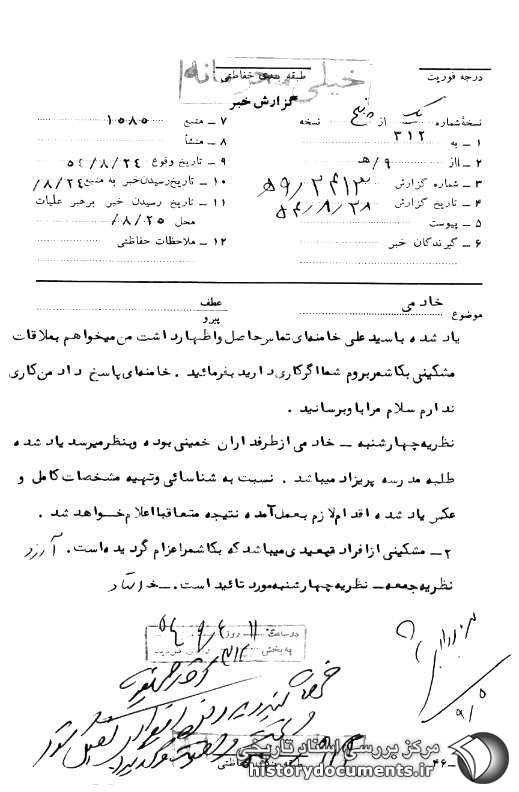 درجه فوریت
طبقه بندی حفاظتی
خیلی محرمانه
گزارش خبر
نسخهٔ شماره یک از پنج نسخه
۱ – به ۳۱۲
۲ – از ۹/هـ
۳ – شماره گزارش
۴ – تاریخ گزارش ۵۴/۸/۲۸
۵ – پیوست
۶ – گیرندگان خبر
۷ – منبع ۱۰۸۵۰
۸ – منشأ
۹ – تاریخ وقوع ۵۴/۸/۲۴
۱۰ – تاریخ رسیدن خبر به منبع ۸/۲۴/
۱۱ – تاریخ رسیدن خبر برهبر عملیات
محل ۸/۲۵/
۱۲ – ملاحظات حفاظتی
موضوع خادمی
عطف
پیرو
یاد شده با سید علی خامنه‌ای تماس حاصل و اظهار داشت من میخواهم بملاقات
مشکینی بکاشمر بروم شما اگر کاری دارید بفرمائید . خامنه‌ای پاسخ داد من کاری
ندارم سلام مرا باو برسانید .
نظریه چهارشنبه – خادمی از طرفداران خمینی بوده و بنظر میرسد یاد شده
طلبه مدرسه پریزاد میباشد . نسبت به شناسائی و تهیه مشخصات کامل و
عکس یاد شده اقدام لازم بعمل آمده نتیجه متعاقبا اعلام خواهد شد .
۲ – مشکینی از افراد تبعیدی میباشد که بکاشمر اعزام گردیده است . آرزو
نظریه جمعه – نظریه چهارشنبه مورد تائید است . –
در ساعت ۱۱ روز
به بخش ۳۱۲
طبقه بندی حفاظتی
۴۶ –
مرکز بررسی اسناد تاریخی
historydocuments.ir